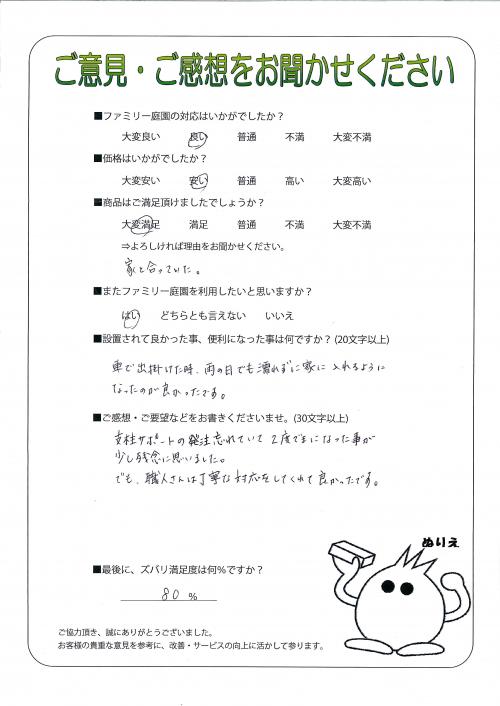 ご意見・ご感想をお聞かせください
■ファミリー庭園の対応はいかがでしたか？
大変良い 良い 普通 不満 大変不満
■価格はいかがでしたか？
大変安い 安い 普通 高い 大変高い
■商品はご満足頂けましたでしょうか？
大変満足 満足 普通 不満 大変不満
⇒よろしければ理由をお聞かせください。
家と合っていた。
■またファミリー庭園を利用したいと思いますか？
はい どちらとも言えない いいえ
■設置されて良かった事、便利になった事は何ですか？(20文字以上)
車で出掛けた時、雨の日でも濡れずに家に入れるように
なったのが良かったです。
■ご感想・ご要望などをお書きくださいませ。(30文字以上)
支柱サポートの発注忘れていて2度でまになった事が
少し残念に思いました。
でも、職人さんは丁寧な対応をしてくれて良かったです。
ぬりえ
■最後に、ズバリ満足度は何％ですか？
80 %
ご協力頂き、誠にありがとうございました。
お客様の貴重な意見を参考に、改善・サービスの向上に活かして参ります。